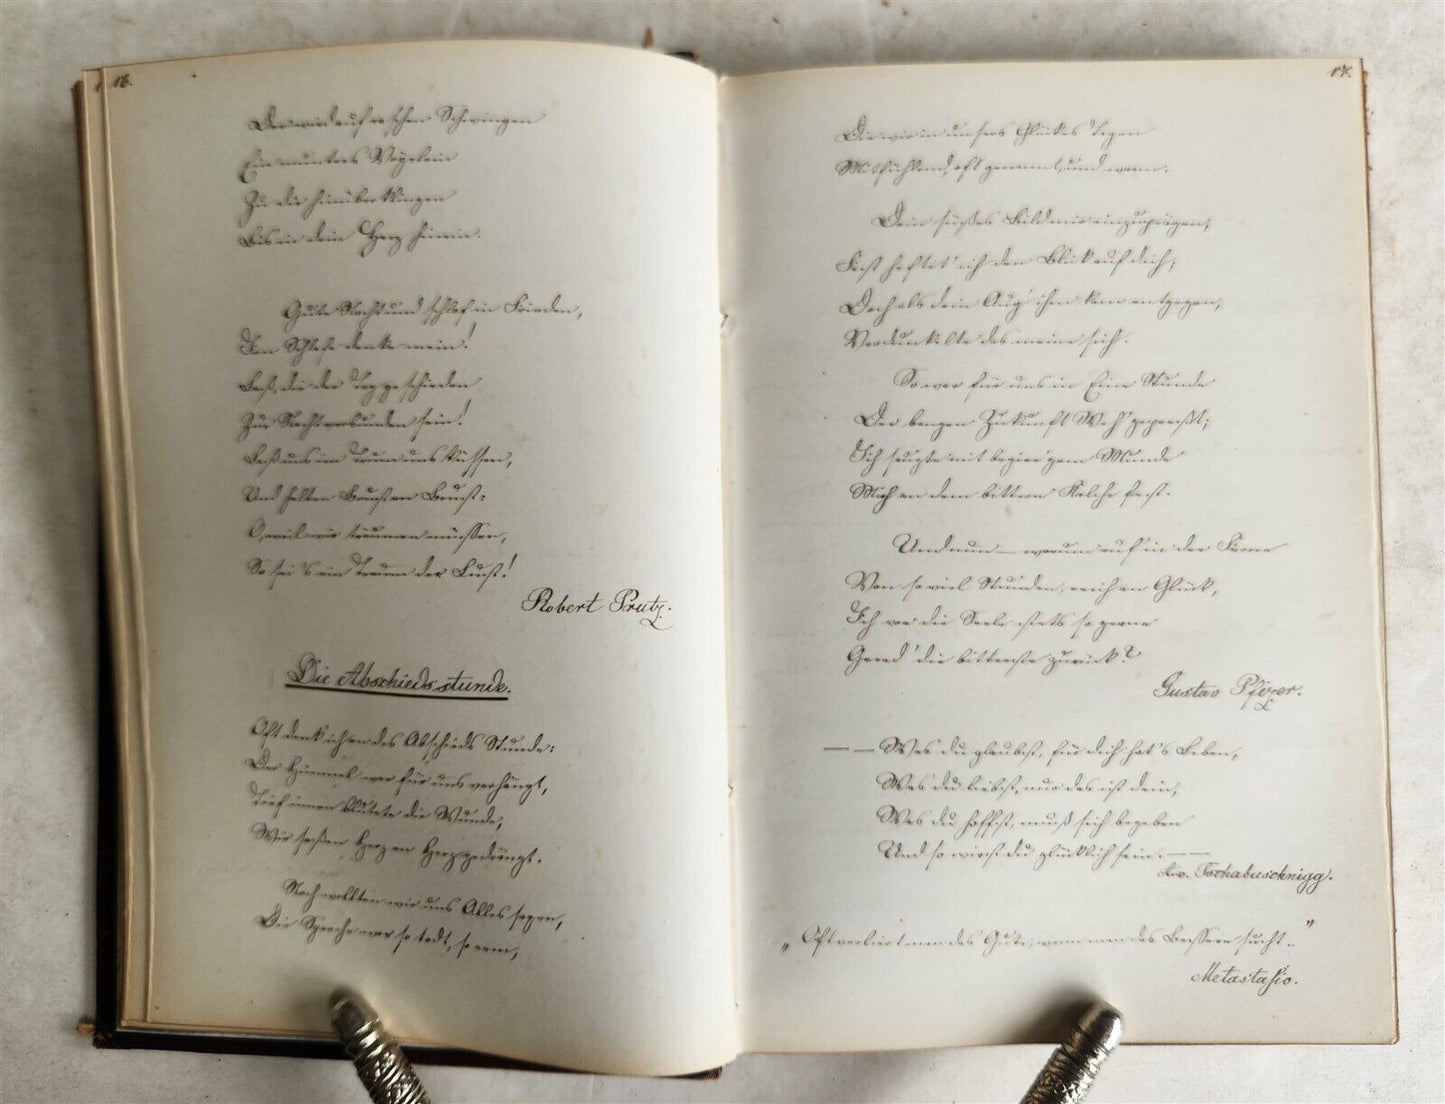 16.
Der wird auf raschen Schwingen
Ein muntres Vögelein
Zu dir hinüber klingen
Bis in dein Herz hinein.
Gute Nacht und schlaf in Frieden,
Im Schlafe denke mein!
Laß, die der Tag geschieden
Zur Nacht verbunden sein!
Laß uns im Traum uns küssen,
Und halten Brust an Brust:
O, weil wir träumen müssen,
So sei's ein Traum der Lust!
Robert Prutz.
Die Abschiedsstunde.
Oft denk ich an des Abschieds Stunde:
Der Himmel war für uns verhängt,
Tief innen blutete die Wunde,
Wir saßen Herz an Herz gedrängt.
Noch wollten wir uns Alles sagen,
Die Sprache war so todt, so arm,
17.
Die wir in unsers Glückes Tagen
Mitfühlend, oft genannt, und warm.
Dein süßes Bild mir einzuprägen,
Fest heftet' ich den Blick auf dich;
Doch als dein Aug' ihm kam entgegen,
Verdunkelte das meine sich.
So war für uns in Eine Stunde
Der bangen Zukunft Weh' gepreßt;
Ich saugte mit begier'gem Munde
Mich an dem bittern Kelche fest.
Und nun — warum ruf' in der Ferne
Von so viel Stunden, reich an Glück,
Ich vor die Seele stets so gerne
Gerad' die bitterste zurück?
Gustav Pfizer.
— — Was du glaubst, für dich hat's Leben,
Was du liebst, nur das ist dein,
Was du hoffst, muß sich begeben
Und so wirst du glücklich sein. — —
A. v. Tschabuschnigg.
„Oft verliert man das Gute, wenn man das Bessere sucht.."
Metastasio.